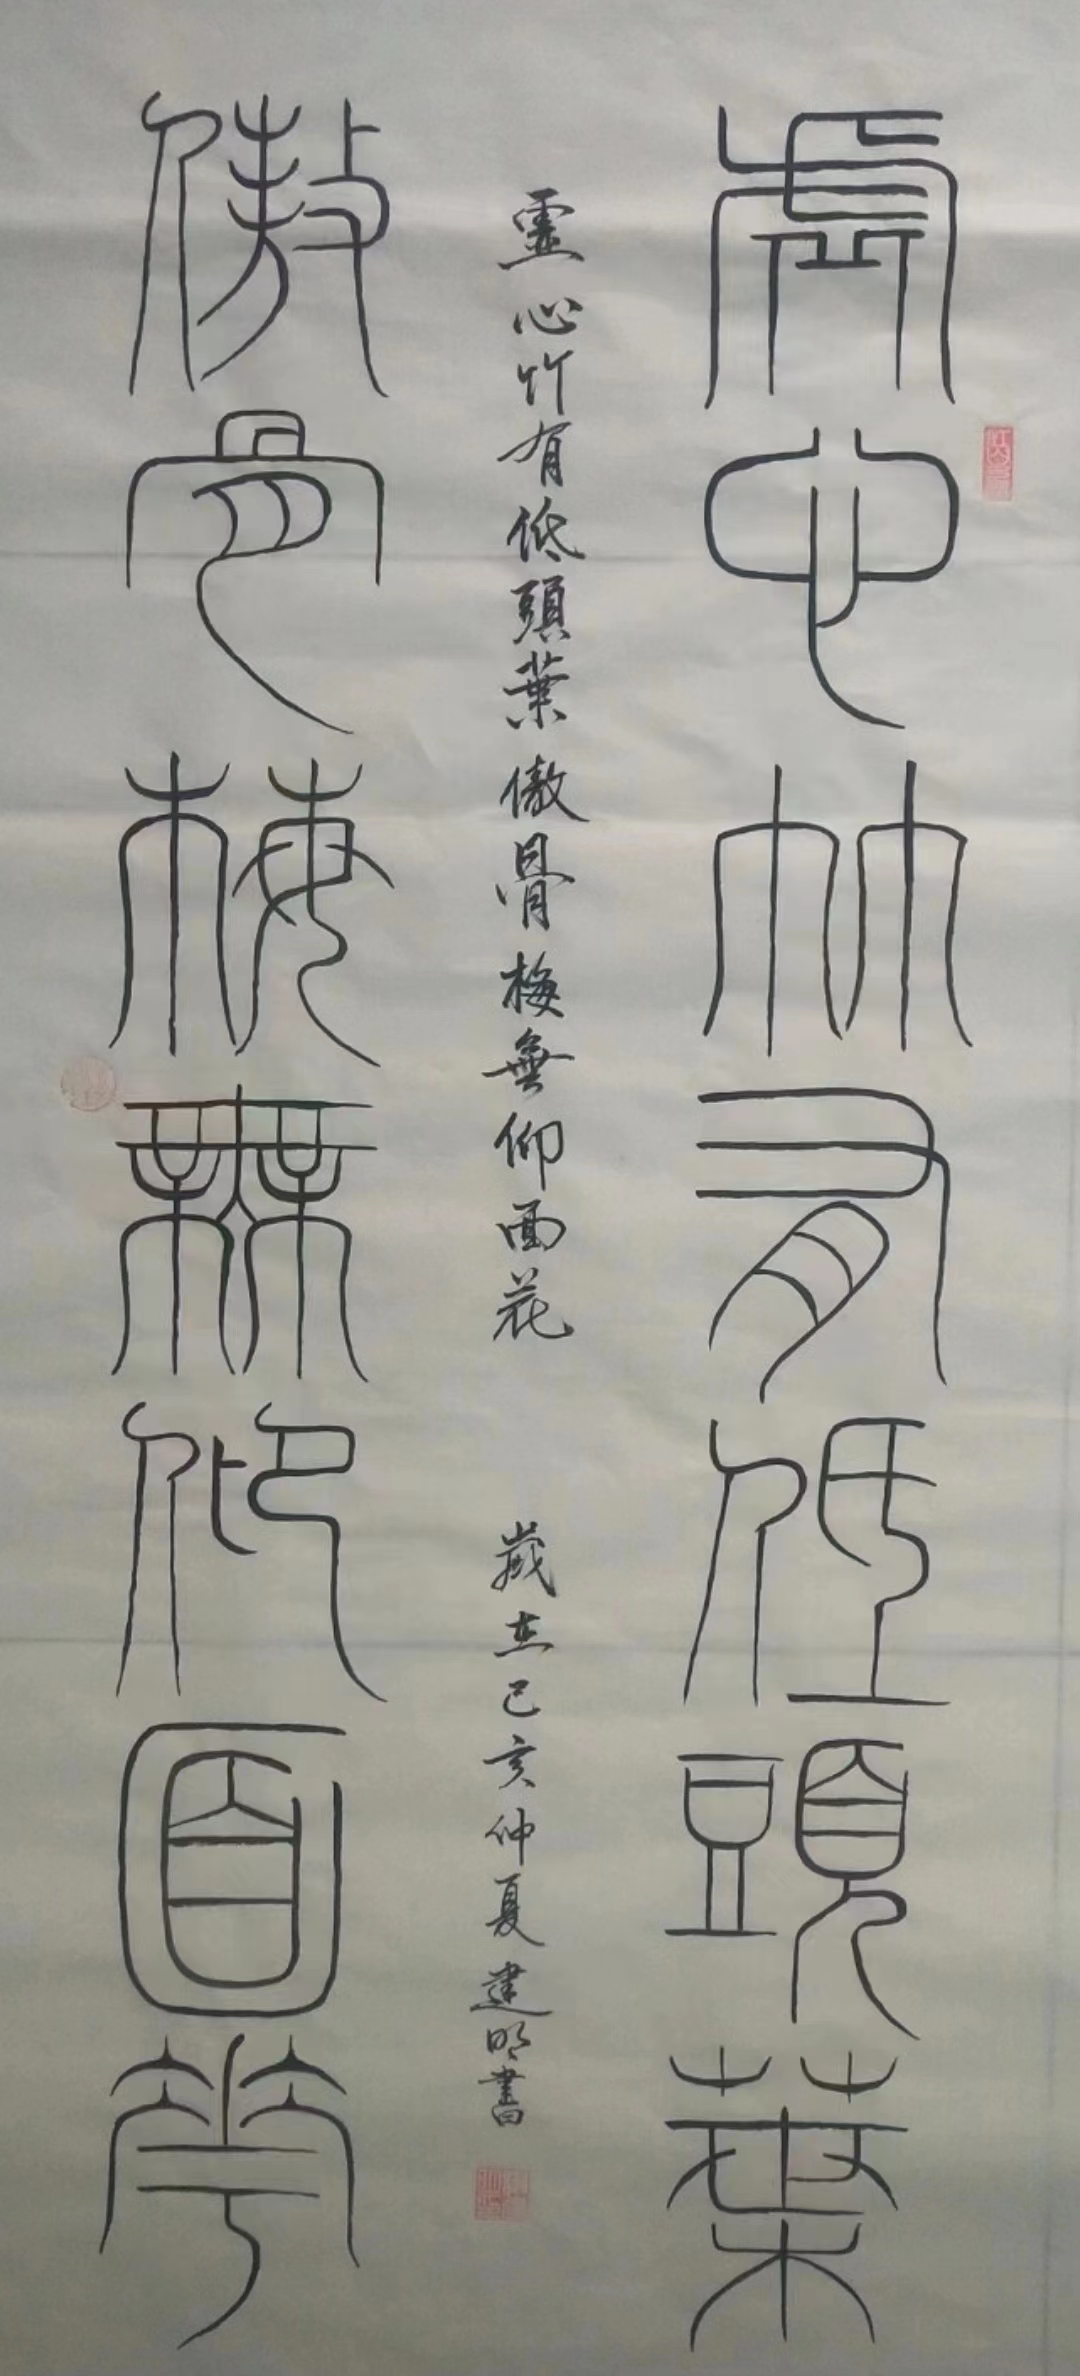 虛心竹有低頭葉
傲骨梅無仰面花
虛心竹有低頭葉傲骨梅無仰面花 歲在己亥仲夏建明書